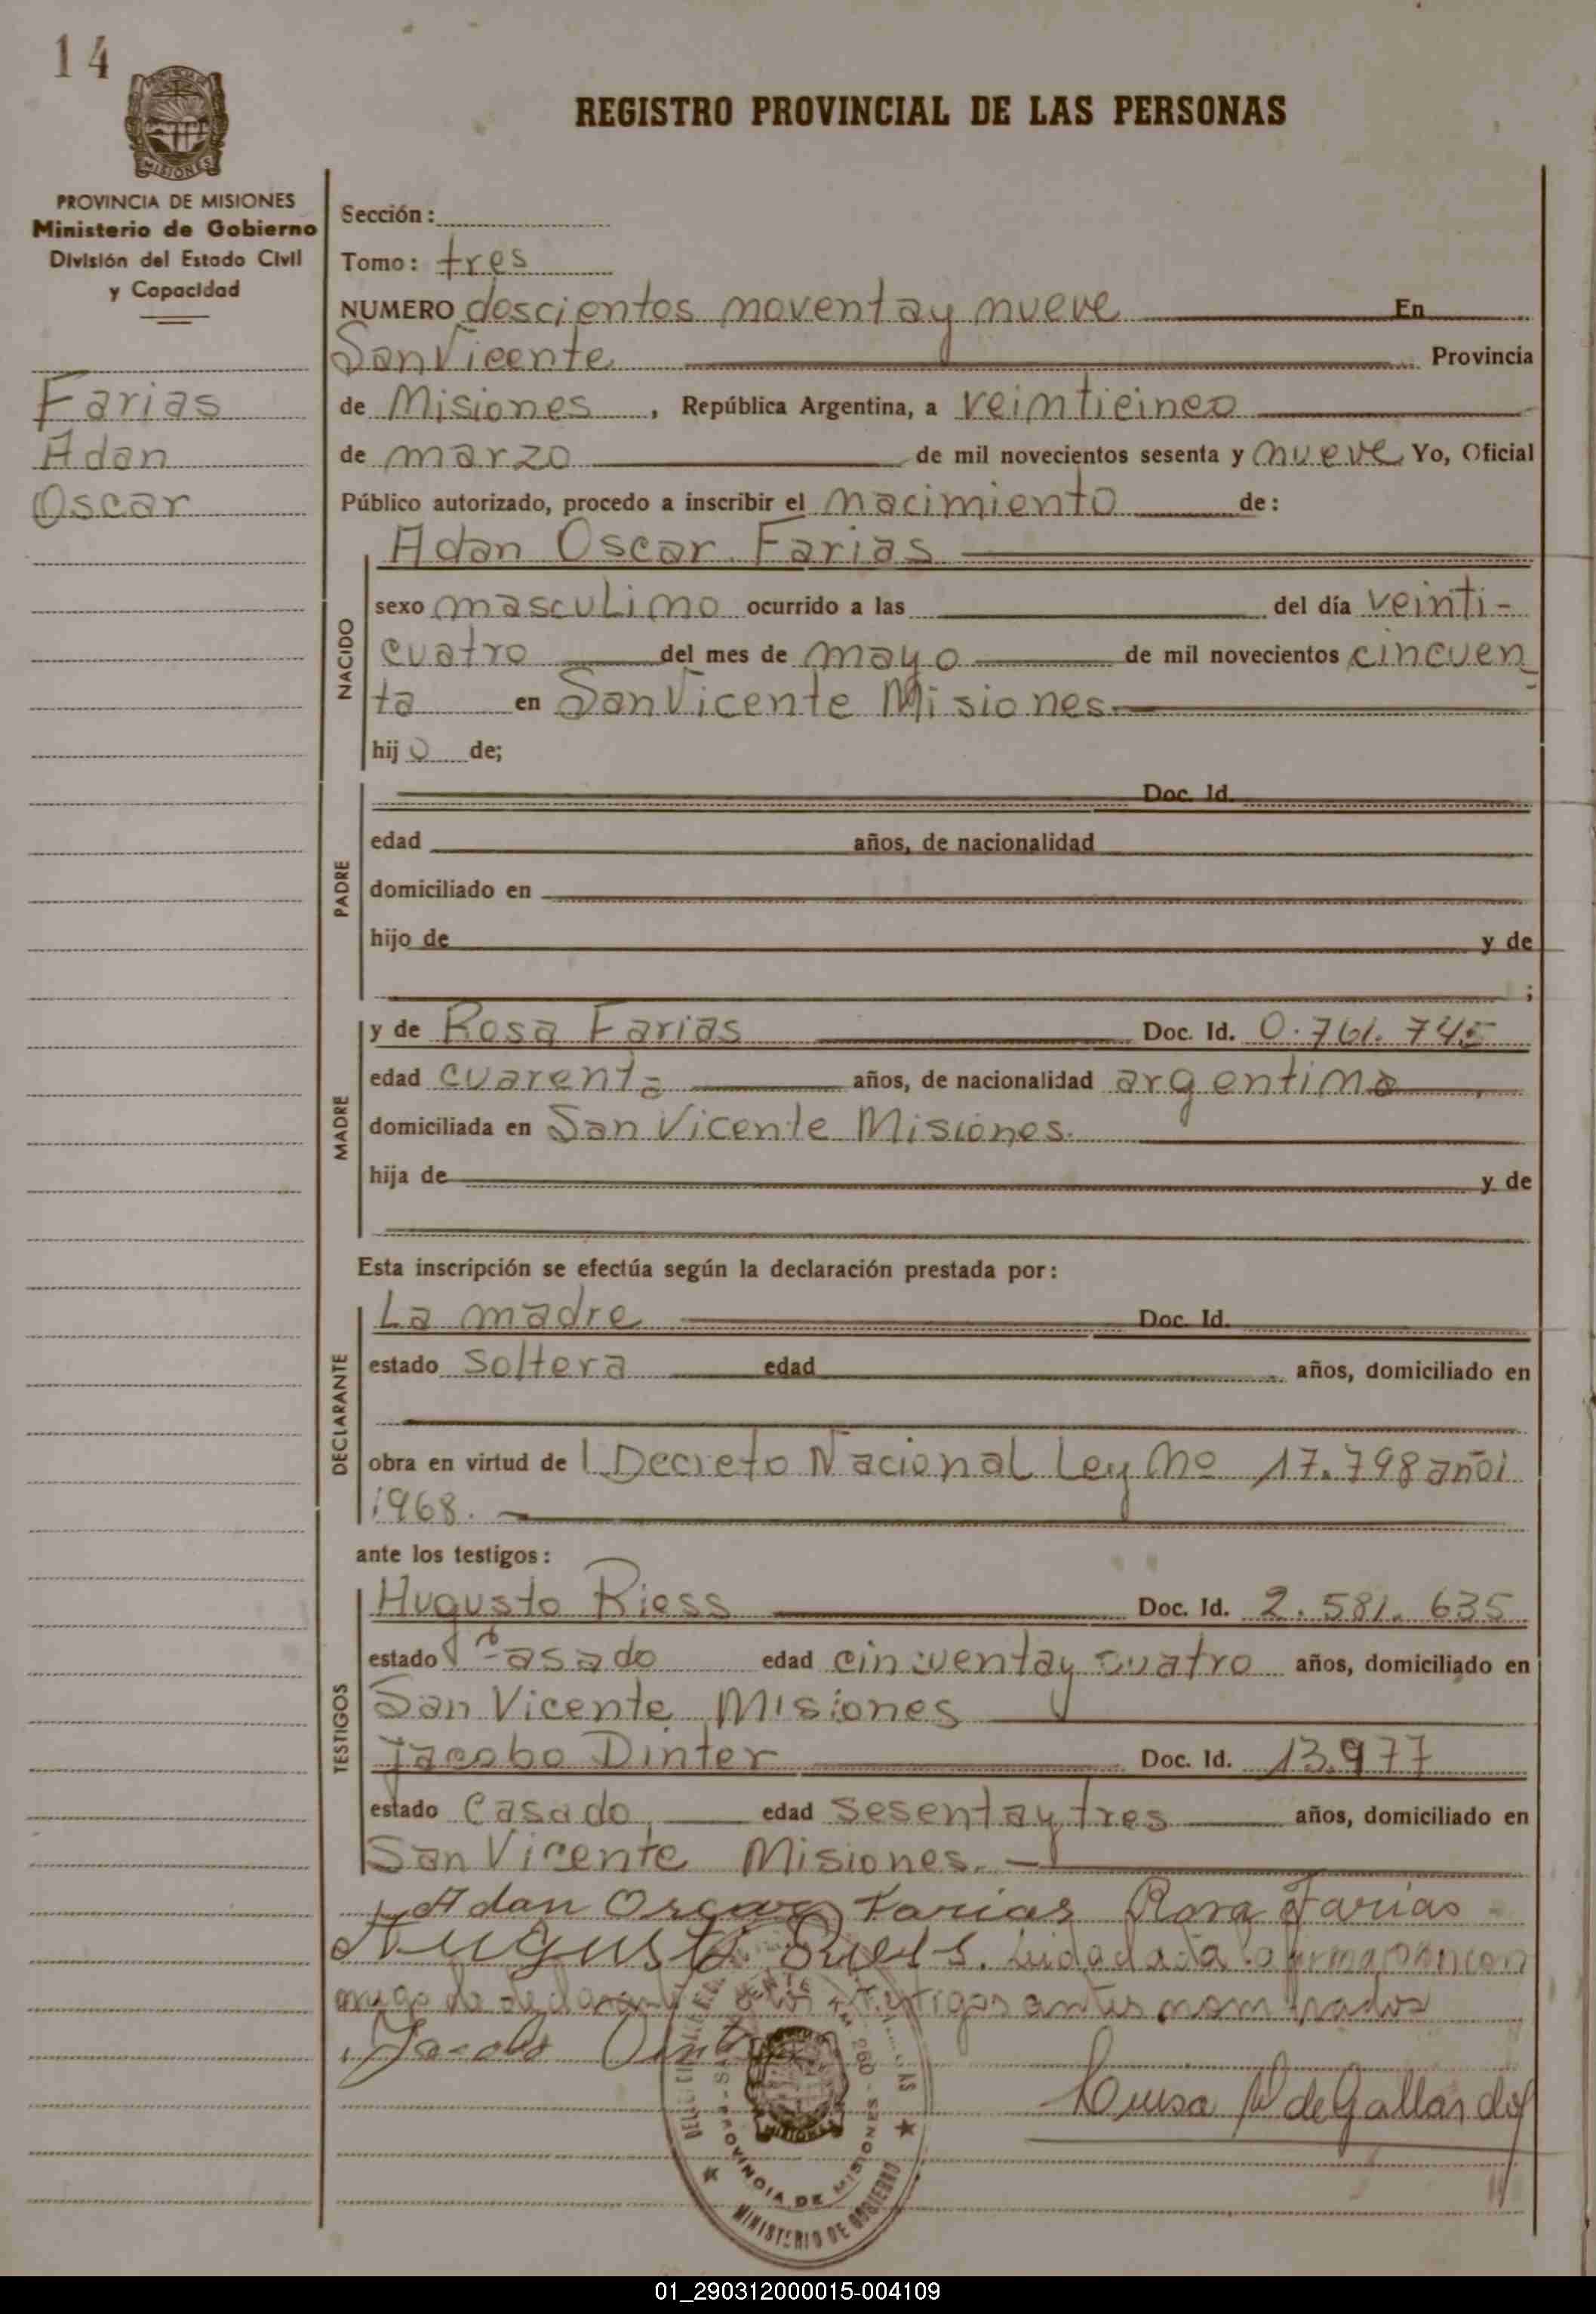 14
PROVINCIA DE
MISIONES
REGISTRO PROVINCIAL DE LAS PERSONAS
PROVINCIA DE MISIONES
Ministerio de Gobierno
División del Estado Civil
y Capacidad
Farias
Adan
Oscar
Sección:
Tomo: tres
NUMERO doscientos noventay nueve En
San Vicente Provincia
de Misiones, República Argentina, a veinticinco
de marzo de mil novecientos sesenta y nueve Yo, Oficial
Público autorizado, procedo a inscribir el nacimiento de:
Adan Oscar Farias
NACIDO
sexo masculino ocurrido a las del día veinti-
cuatro del mes de mayo de mil novecientos cincuen
ta en San Vicente Misiones
hijo de;
PADRE
Doc. Id.
edad años, de nacionalidad
domiciliado en
hijo de y de
;
MADRE
y de Rosa Farias Doc. Id. 0.761.745
edad cuarenta años, de nacionalidad argentina
domiciliada en San Vicente Misiones.
hija de y de
Esta inscripción se efectúa según la declaración prestada por:
DECLARANTE
La madre Doc. Id.
estado soltera edad años, domiciliado en
obra en virtud de l Decreto Nacional Ley No 17.798
1968.
ante los testigos:
TESTIGOS
Augusto Riess Doc. Id. 2.581.635
estado Casado edad cincuentay cuatro años, domiciliado en
San Vicente Misiones
Jacobo Dinter Doc. Id. 13.977
estado Casado edad sesentaytres años, domiciliado en
San Vicente Misiones.
Adan Oscar Farias Rosa Farias
Augusto Riess.
testigos antes nombrados
Jacobo
Luisa de Gallardo
PROVINCIA DE MISIONES
MINISTERIO DE GOBIERNO
01_290312000015-004109